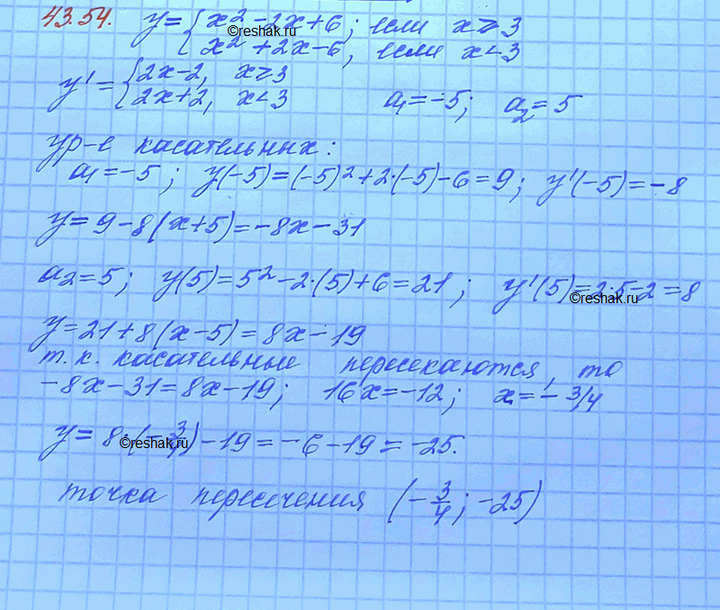 43.54. y = { x² - 2x + 6; если x ≥ 3
©reshak.ru
x² + 2x - 6, если x < 3
y' = { 2x - 2, x ≥ 3
2x + 2, x < 3 a₁ = -5; a₂ = 5
ур-е касательных:
a₁ = -5; y(-5) = (-5)² + 2·(-5) - 6 = 9; y'(-5) = -8
y = 9 - 8(x + 5) = -8x - 31
a₂ = 5; y(5) = 5² - 2·(5) + 6 = 21; y'(5) = 2·5 - 2 = 8
©reshak.ru
y = 21 + 8(x - 5) = 8x - 19
т.к. касательные пересекаются, то
-8x - 31 = 8x - 19; 16x = -12; x = - 3/4
y = 8·(-3/4) - 19 = -6 - 19 = -25.
©reshak.ru
точка пересечения (-3/4; -25)